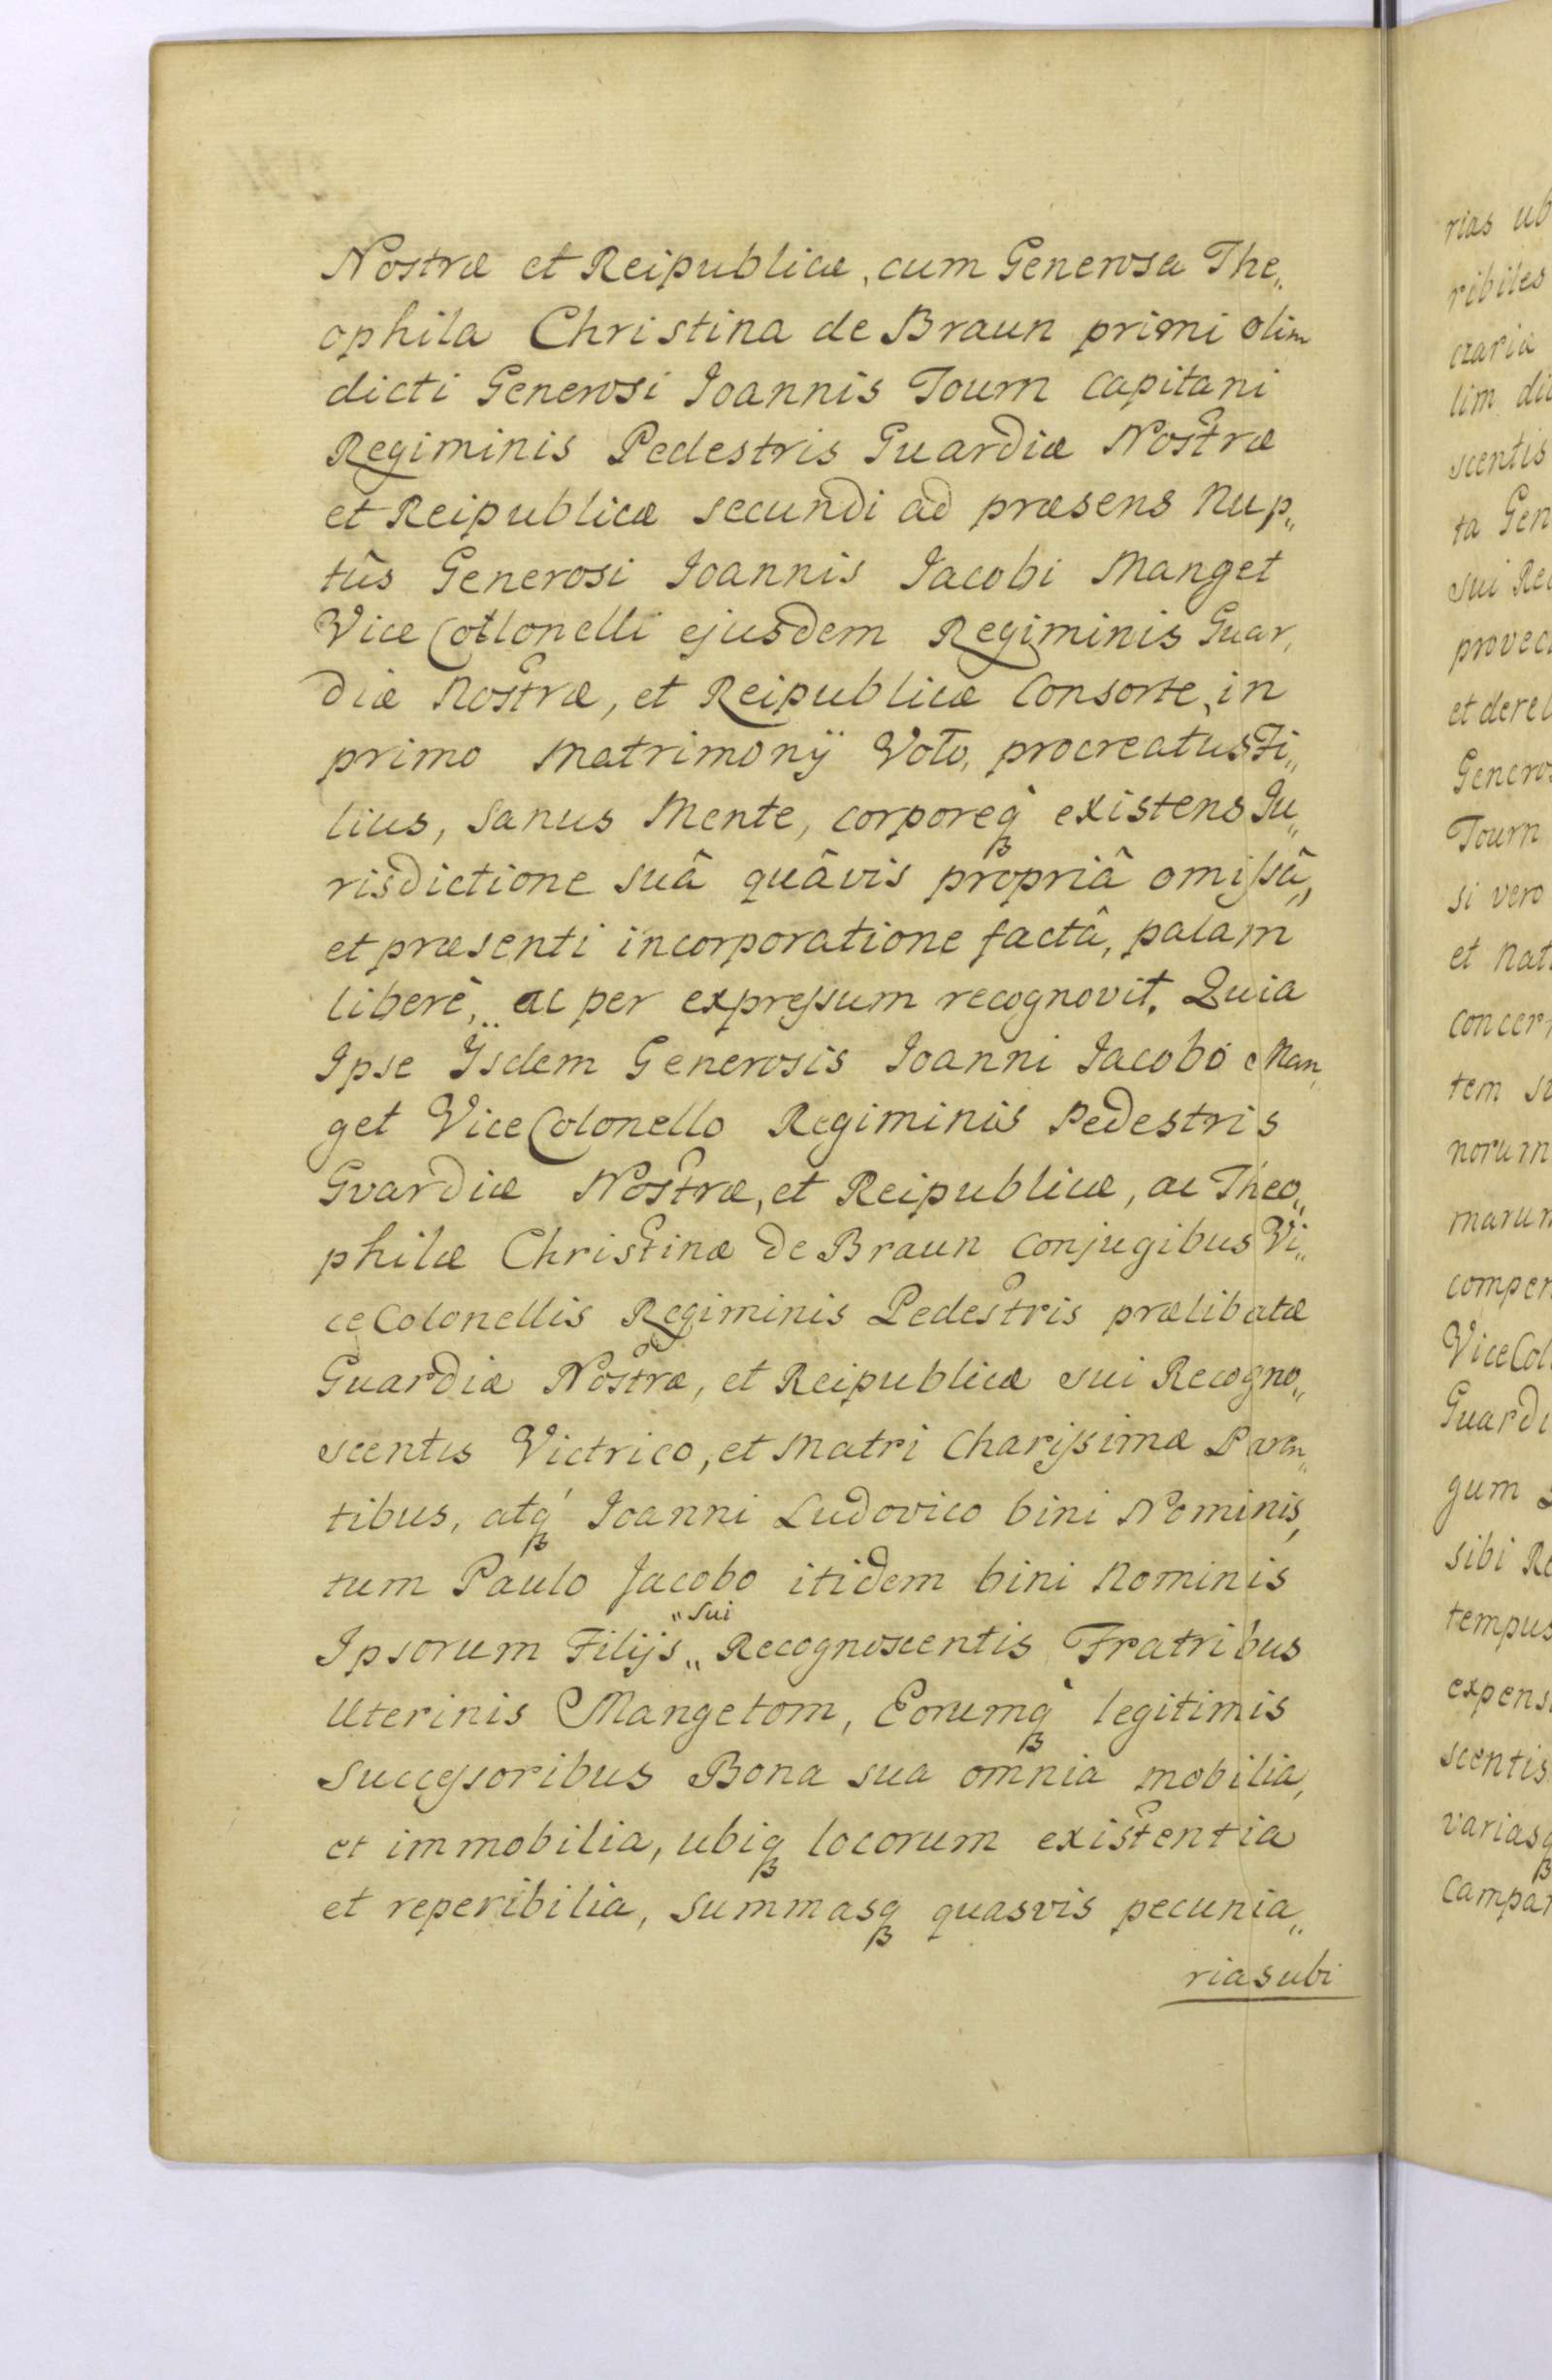 Nostræ et Reipublicæ, cum Generosa The„
ophila Christina de Braun primi olim
dicti Generosi Ioannis Tourn Capitani
Regiminis Pedestris Guardiæ Nostræ
et Reipublicæ secundi ad præsens Nup„
tûs Generosi Ioannis Iacobi Manget
Vice Collonelli ejusdem Regiminis Guar„
diæ Nostræ, et Reipublicæ Consorte, in
primo Matrimonÿ Voto, procreatus Fi„
lius, Sanus Mente, corporeq̀ existens Ju„
risdictione suâ quâvis propriâ omissâ,
et præsenti incorporatione factâ, palam
liberè, ac per expressum recognovit. Quia
Ipse Ÿsdem Generosis Ioanni Iacobo Man„
get Vice Colonello Regiminis Pedestris
Gvardiæ Nostræ, et Reipublicæ, ac Theo„
philæ Christinæ de Braun Conjugibus Vi„
ce Colonellis Regiminis Pedestris prælibatæ
Guardiæ Nostræ, et Reipublicæ sui Recogno„
scentis Victrico, et Matri Charissimæ Paren„
tibus, atq́ Ioanni Ludovico bini Nominis,
tum Paulo Jacobo itidem bini Nominis
Ipsorum Filijs „ Sui Recognoscentis Fratribus
Uterinis Mangetom, Eorumq̀ legitimis
Successoribus Bona sua omnia mobilia,
et immobilia, ubiq locorum existentia
et reperibilia, Summasq quasvis pecunia„
rias ubi
rias ub
ribiles
craria
lim di
scentis
ta Gen
sui Re
provec
et derel
Generos
Tourn
si vero
et Nat
concer
tem su
norum
marum
compen
Vice Col
Guardi
gum
sibi Re
tempus
expens
scentis
variasq
Campan